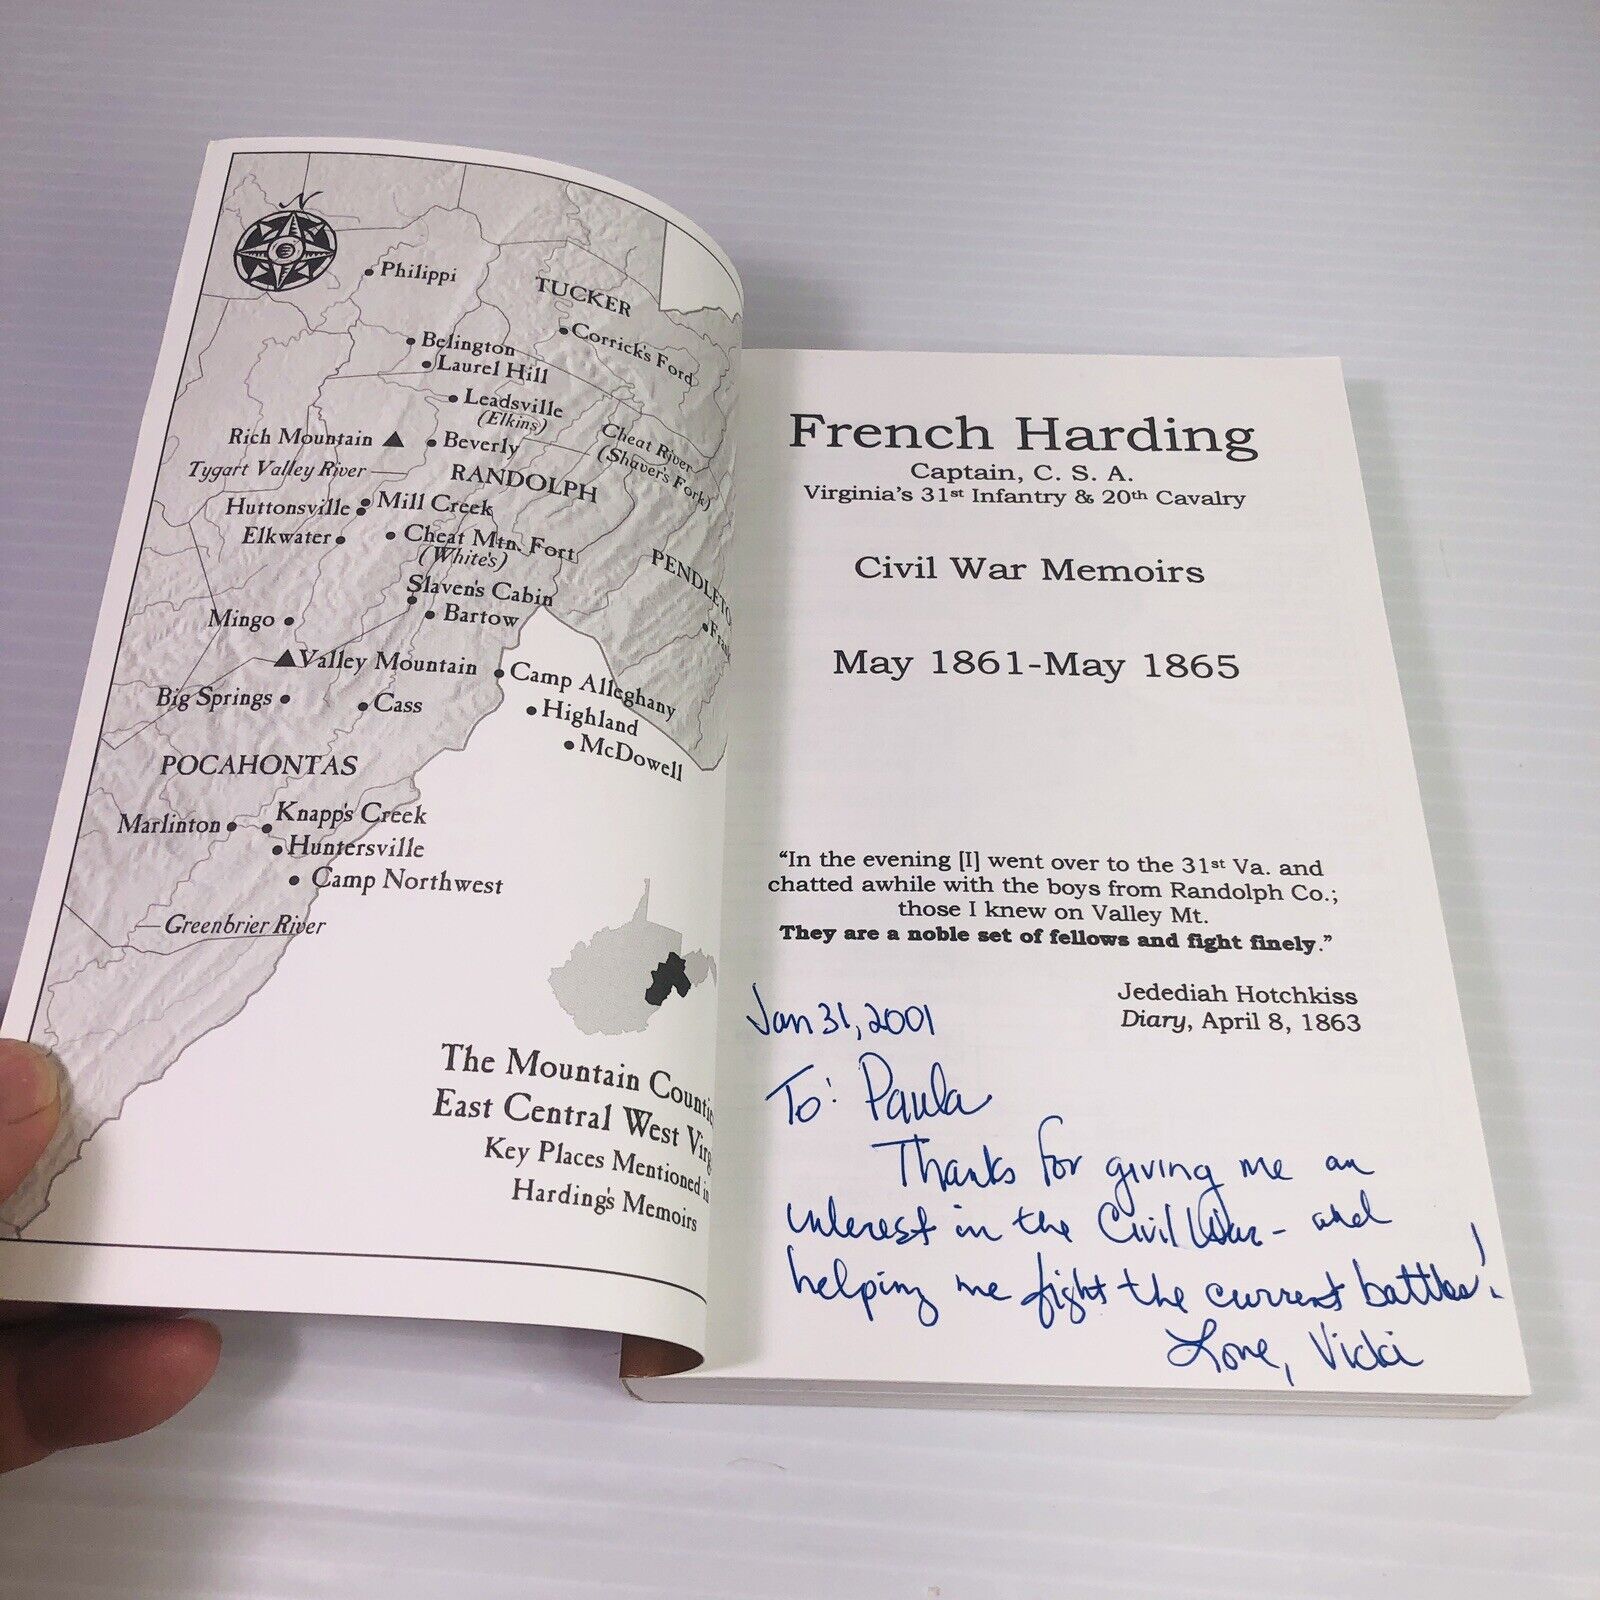 N
Philippi
TUCKER
Corrick's Ford
Belington
Laurel Hill
Leadsville
(Elkins)
Cheat River
(Shaver's Fork)
Rich Mountain
Beverly
Tygart Valley River
RANDOLPH
Huttonsville
Mill Creek
Elkwater
Cheat Mtn. Fort
(White's)
PENDLETO
Slaven's Cabin
Mingo
Bartow
Fra
Valley Mountain
Camp Alleghany
Big Springs
Cass
Highland
McDowell
POCAHONTAS
Knapp's Creek
Marlinton
Huntersville
Camp Northwest
Greenbrier River
The Mountain Counti
East Central West Virg
Key Places Mentioned in
Harding's Memoirs
French Harding
Captain, C. S. A.
Virginia's 31st Infantry & 20th Cavalry
Civil War Memoirs
May 1861-May 1865
“In the evening [I] went over to the 31st Va. and
chatted awhile with the boys from Randolph Co.;
those I knew on Valley Mt.
They are a noble set of fellows and fight finely.”
Jedediah Hotchkiss
Diary, April 8, 1863
Jan 31, 2001
To: Paula
Thanks for giving me an
interest in the Civil War - and
helping me fight the current battles!
Love, Vicki